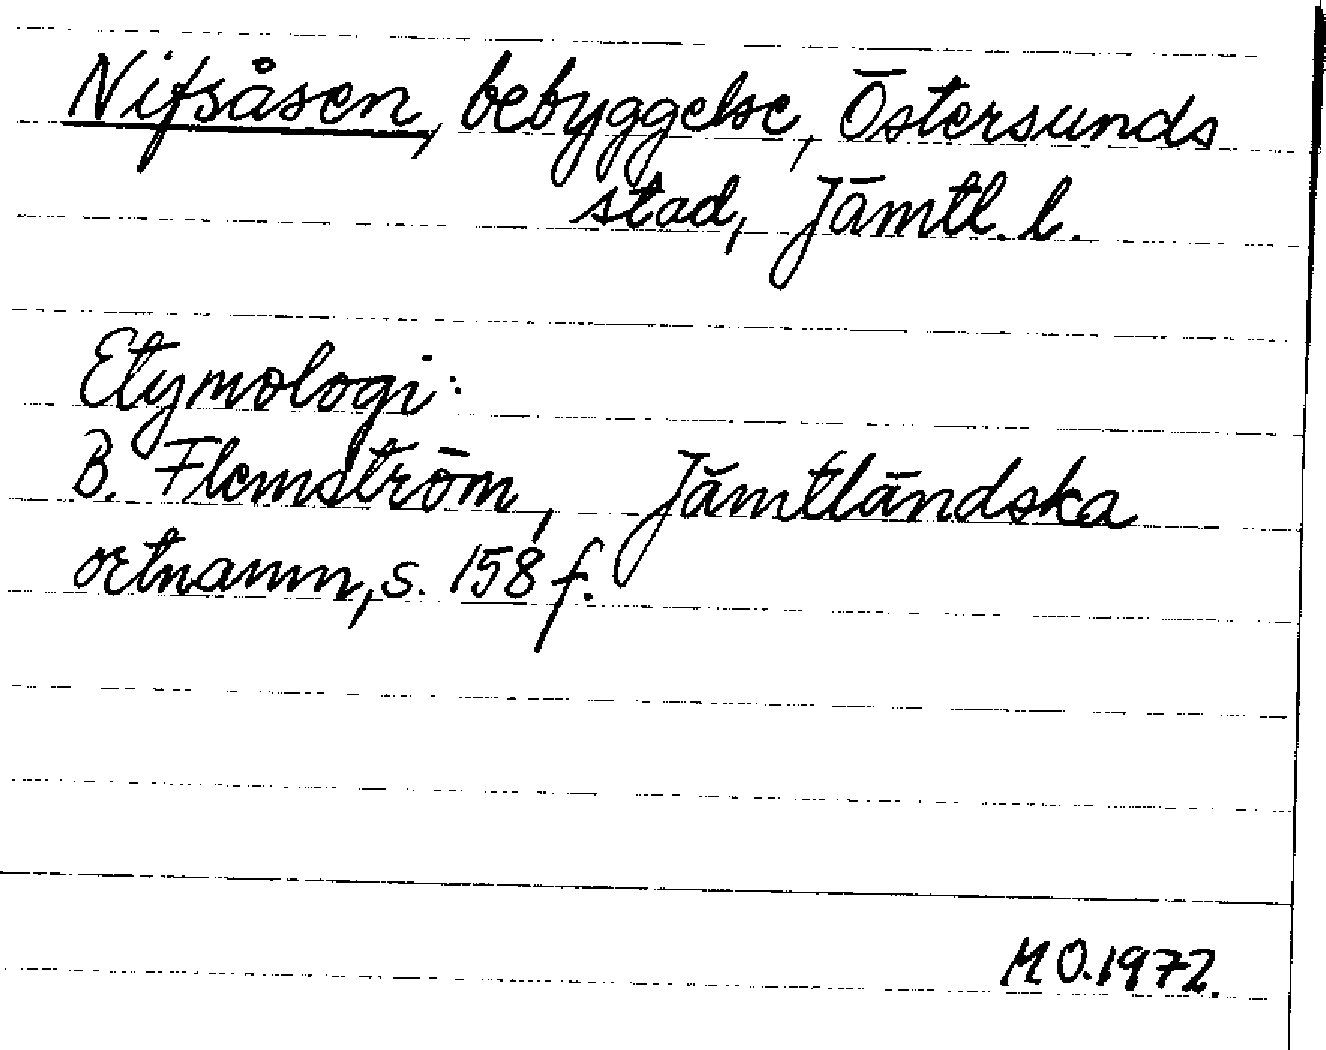 Nifsåsen, bebyggelse, Östersunds
stad, Jämtl. l.
Etymologi:
B. Flemström, Jämtländska
ortnamn, s. 158 f.
M O. 1972.